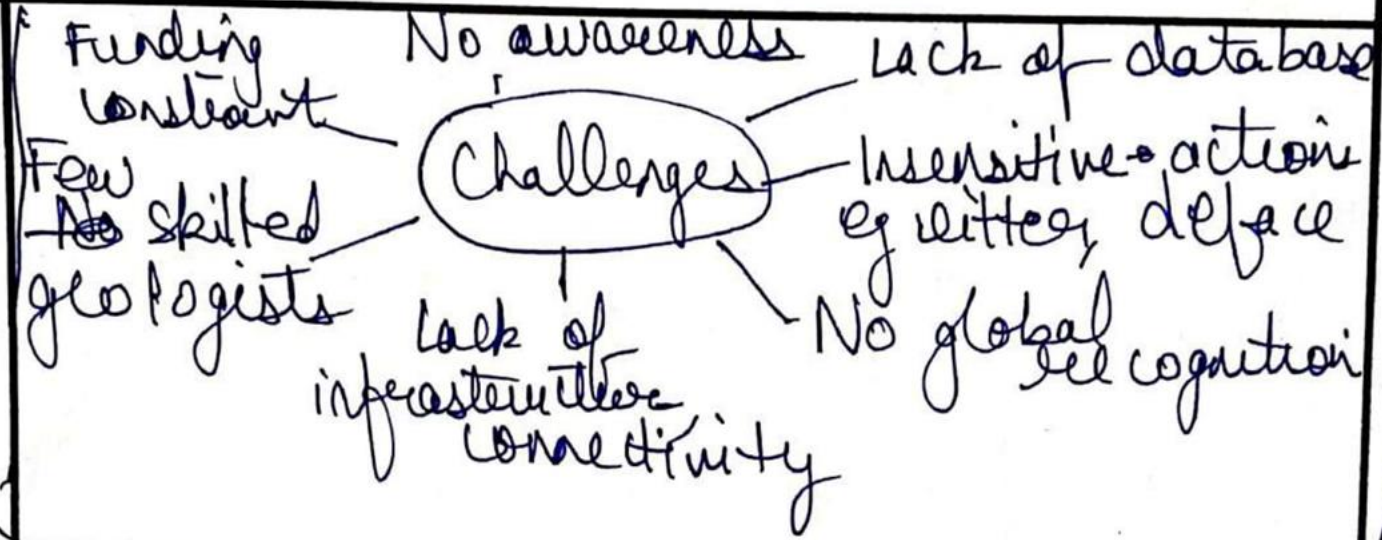 Funding
constraint
No awareness
Lack of database
Challenges
Insensitive actions
eg litter, deface
No global
recognition
Lack of
infrastructure
connectivity
Few
No skilled
geologists